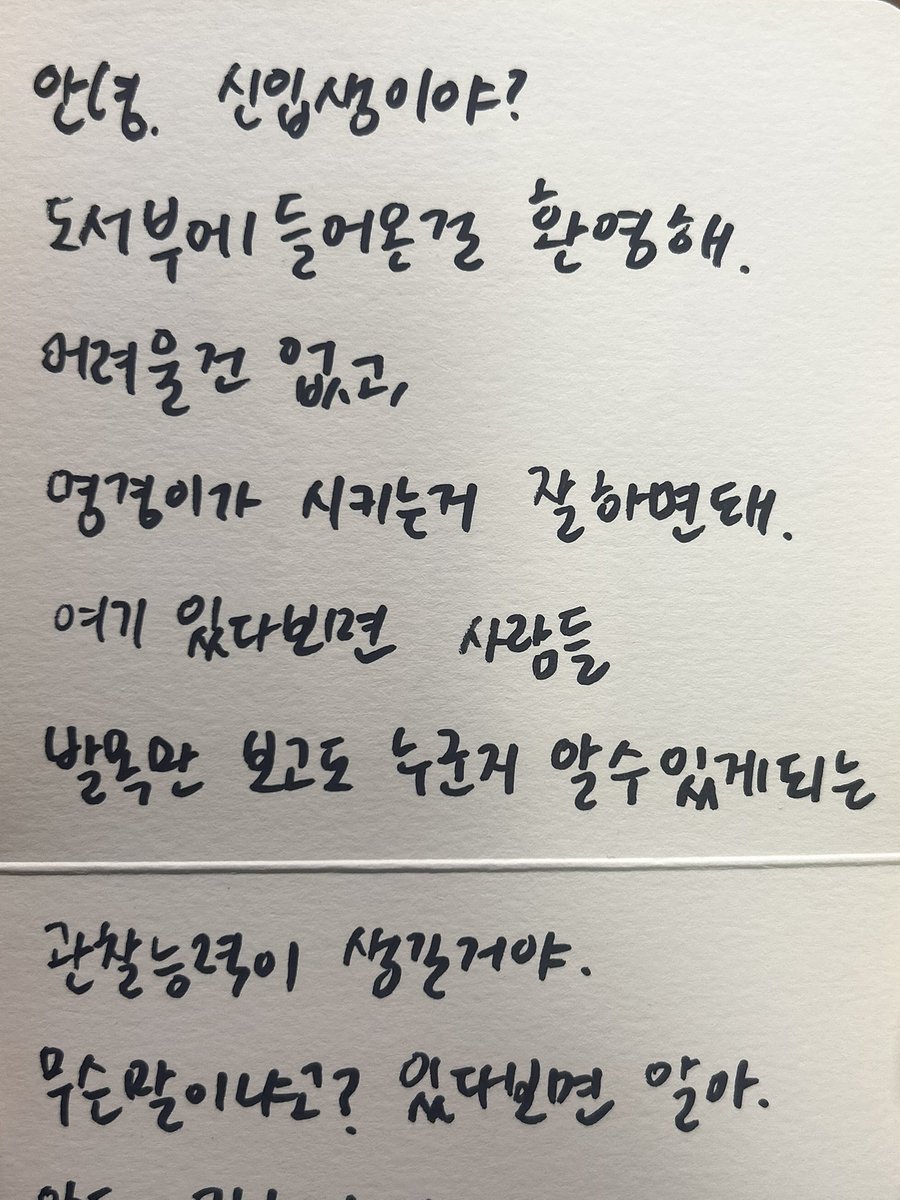 안녕. 신입생이야?
도서부에 들어온걸 환영해.
어려울건 없고,
명경이가 시키는거 잘하면돼.
여기 있다보면 사람들
발목만 보고도 누군지 알수있게되는
관찰능력이 생길거야.
무슨말이냐고? 있다보면 알아.